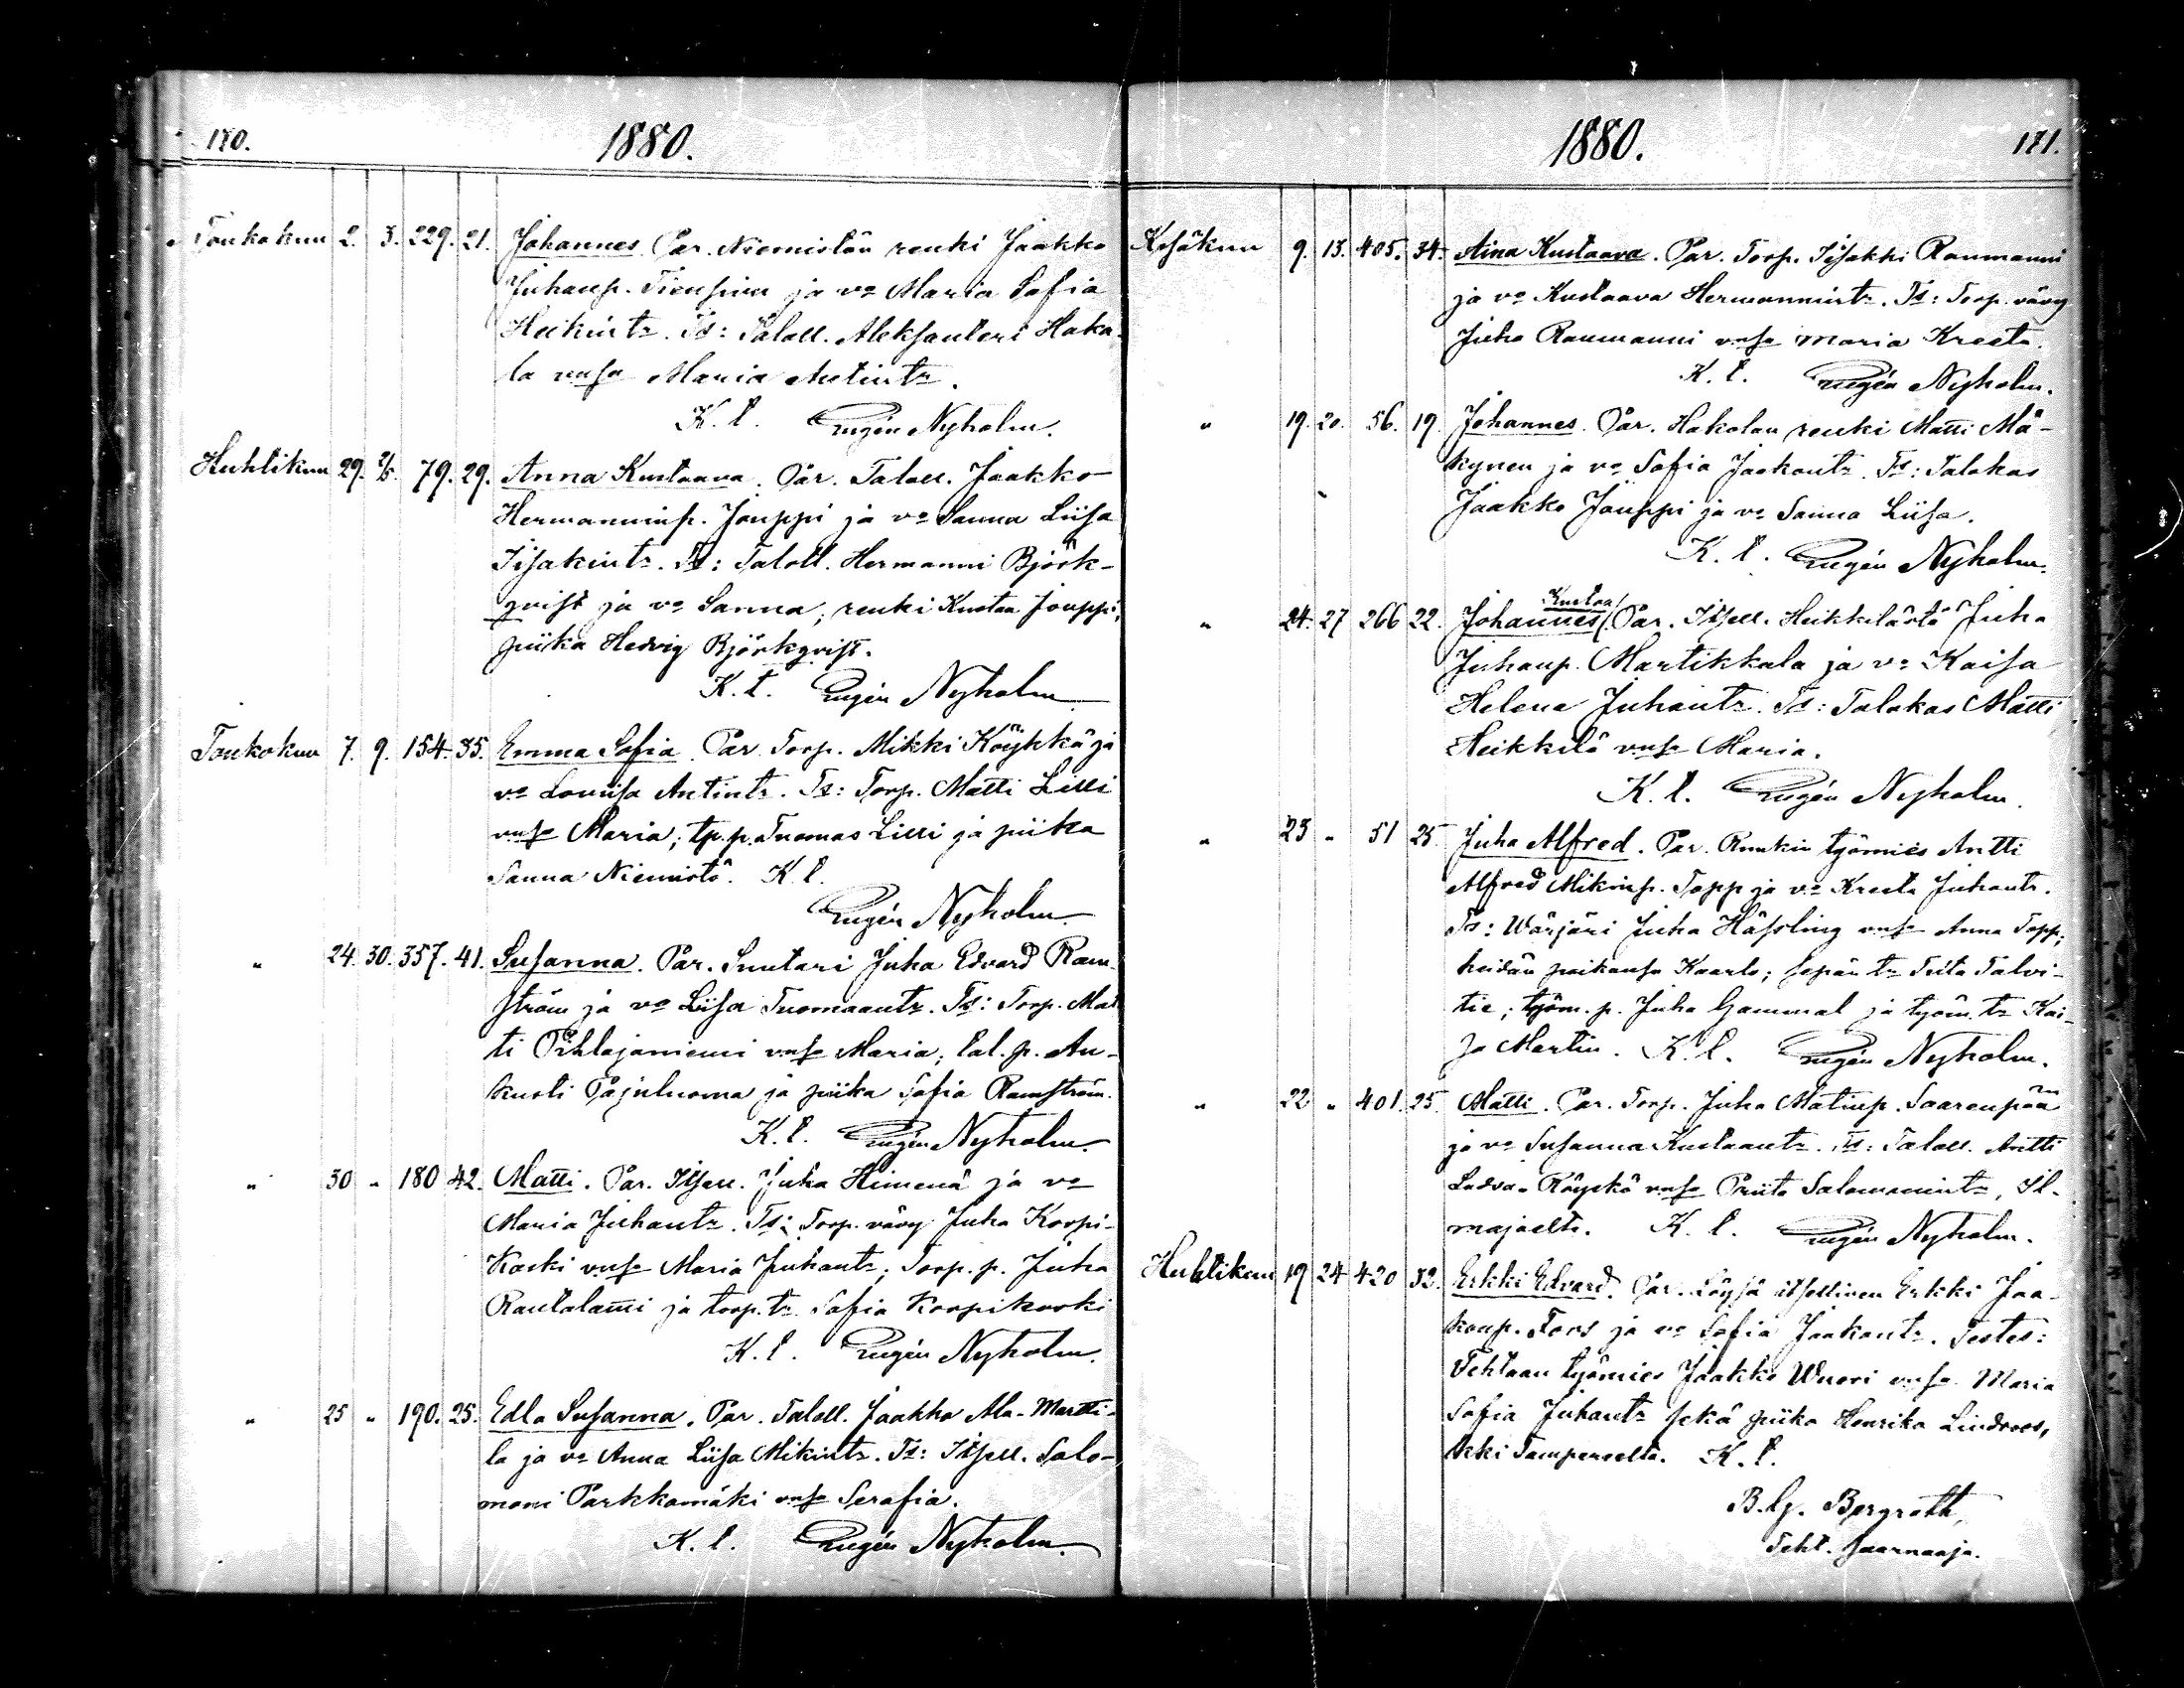 170.
1880.
Toukokuu 2. 3. 229. 21. Johannes. Par. Niemistön renki Jaakko
Juhanp. Tienpiva ja vo Maria Sofia
Heikintr. Ts: Taloll. Aleksanteri Haka-
la vnsa Maria Antintr.
K. l. Eugén Nyholm.
Huhtikuu 29. 2/5. 79. 29. Anna Kustaava. Par. Taloll. Jaakko
Hermanninp. Jouppi ja vo Sanna Liisa
Iisakintr. Ts: Taloll. Hermanni Björk-
qvist ja vo Sanna; renki Kustaa Jouppi,
piika Hedvig Björkqvist.
K. l. Eugén Nyholm
Toukokuu 7. 9. 154. 35. Emma Sofia. Par. Torp. Mikki Köykkä ja
vo Lovisa Antintr. Ts: Torp. Matti Lilli
vnsa Maria; tp. p. Tuomas Lilli ja piika
Sanna Niemistö. K. l.
Eugén Nyholm
" 24. 30. 357. 41. Susanna. Par. Suutari Juha Edvard Ram-
ström ja vo Liisa Tuomaantr. Ts: Torp. Mat
ti Pihlajaniemi vnsa Maria; tal. p. Au-
kusti Pajuluoma ja piika Sofia Ramström.
K. l. Eugén Nyholm.
" 30 " 180 42. Matti. Par. Itsell. Juha Himená ja vo
Maria Juhantr. Ts: Torp. vävy Juha Korpi-
Koski vnsa Maria Juhantr; Torp. p. Juha
Rautalami ja torp. tr. Sofia Korpikoski
K. l. Eugén Nyholm.
" 25 " 190. 25. Edla Susanna. Par. Taloll. Jaakko Ala-Martti-
la ja vo Anna Liisa Mikintr. Ts: Itsell. Salo-
moni Parkkamäki vnsa Serafia.
K. l. Eugén Nyholm.
1880.
171.
Kesäkuu 9. 13. 405. 34. Aina Kustaava. Par. Torp. Iisakki Raumanni
ja vo Kustaava Hermannintr. Ts: Torp. vävy
Juha Raumanni vnsa Maria Kreeta.
K. l. Eugén Nyholm.
" 19. 20. 56. 19. Johannes. Par. Hakolan renki Matti Mä-
kynen ja vo Sofia Jaakontr. Ts: Talokas
Jaakko Jouppi ja vo Sanna Liisa.
K. l. Eugén Nyholm.
Kustaa
" 24. 27 266 22. Johannes. Par. Itsell. Heikkilästä Juha
Juhanp. Martikkala ja vo Kaisa
Helena Juhantr. Ts: Talokas Matti
Heikkilä vnsa Maria.
K. l. Eugén Nyholm.
" 23 " 51 25. Juha Alfred. Par. Ruukin työmies Antti
Alfred Mikinp. Topp ja vo Kreeta Juhantr.
Ts: Wärjäri Juha Hässling vnsa Anna Topp;
heidän poikansa Kaarlo; sepän tr Fiita Talvi-
tie; työm. p. Juha Gammal ja työm. tr Kai-
sa Martin. K. l. Eugén Nyholm.
" 22 " 401. 25. Matti. Par. Torp. Juha Matinp. Saarenpää
ja vo Susanna Kustaantr. Ts: Taloll. Antti
Ladva-Röyskö vnsa Priita Salomonintr, Il-
majoelta. K. l. Eugén Nyholm.
Huhtikuu 19 24 420 32. Erkki Edvard. Par. Löysä itsellinen Erkki Jaa-
konp. Fors ja vo Sofia Jaakontr. Testes:
Tehtaan työmies Jaakko Wuori vnsa Maria
Sofia Juhantr sekä piika Henrika Lindroos,
kki Tampereelta. K. l.
B. G. Bergroth,
Teht. saarnaaja.